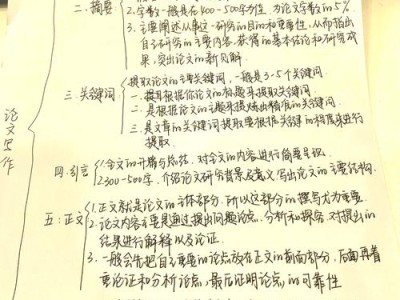 论文写作
二.摘要
2.字数一般是在400-500字为佳,为论文字数的5%
3.主要阐述从事这一研究的目的和重要性,从而指出
自己研究的主要内容,获得的基本结论和研究成
果,突出论文的新见解.
三 关键词
提取论文的主要关键词,一般是3-5个关键词
一.提取根据你论文的标题来提取关键词.
二.是根据论文的主题来提炼出精准的关键词.
三.是文章的关键词提取要根据关键的程度来进行
提取.
四.引言
1.全文的开篇与总结,对全文的内容进行简要呈现.
2.300-500字,介绍论文研究背景及意义,写出论文的主要结构.
五:正文
1.正文就是论文的主体部分,所以这部分的撰写尤为重要.
2.论文内容主要是通过提出问题论点,分析和探究,对提出的
结果进行解释以及论证.
3.一般会先把自己主要的论点放在正文的前面部分,后面再着
重论证和分析论点,最后证明论点的可靠性